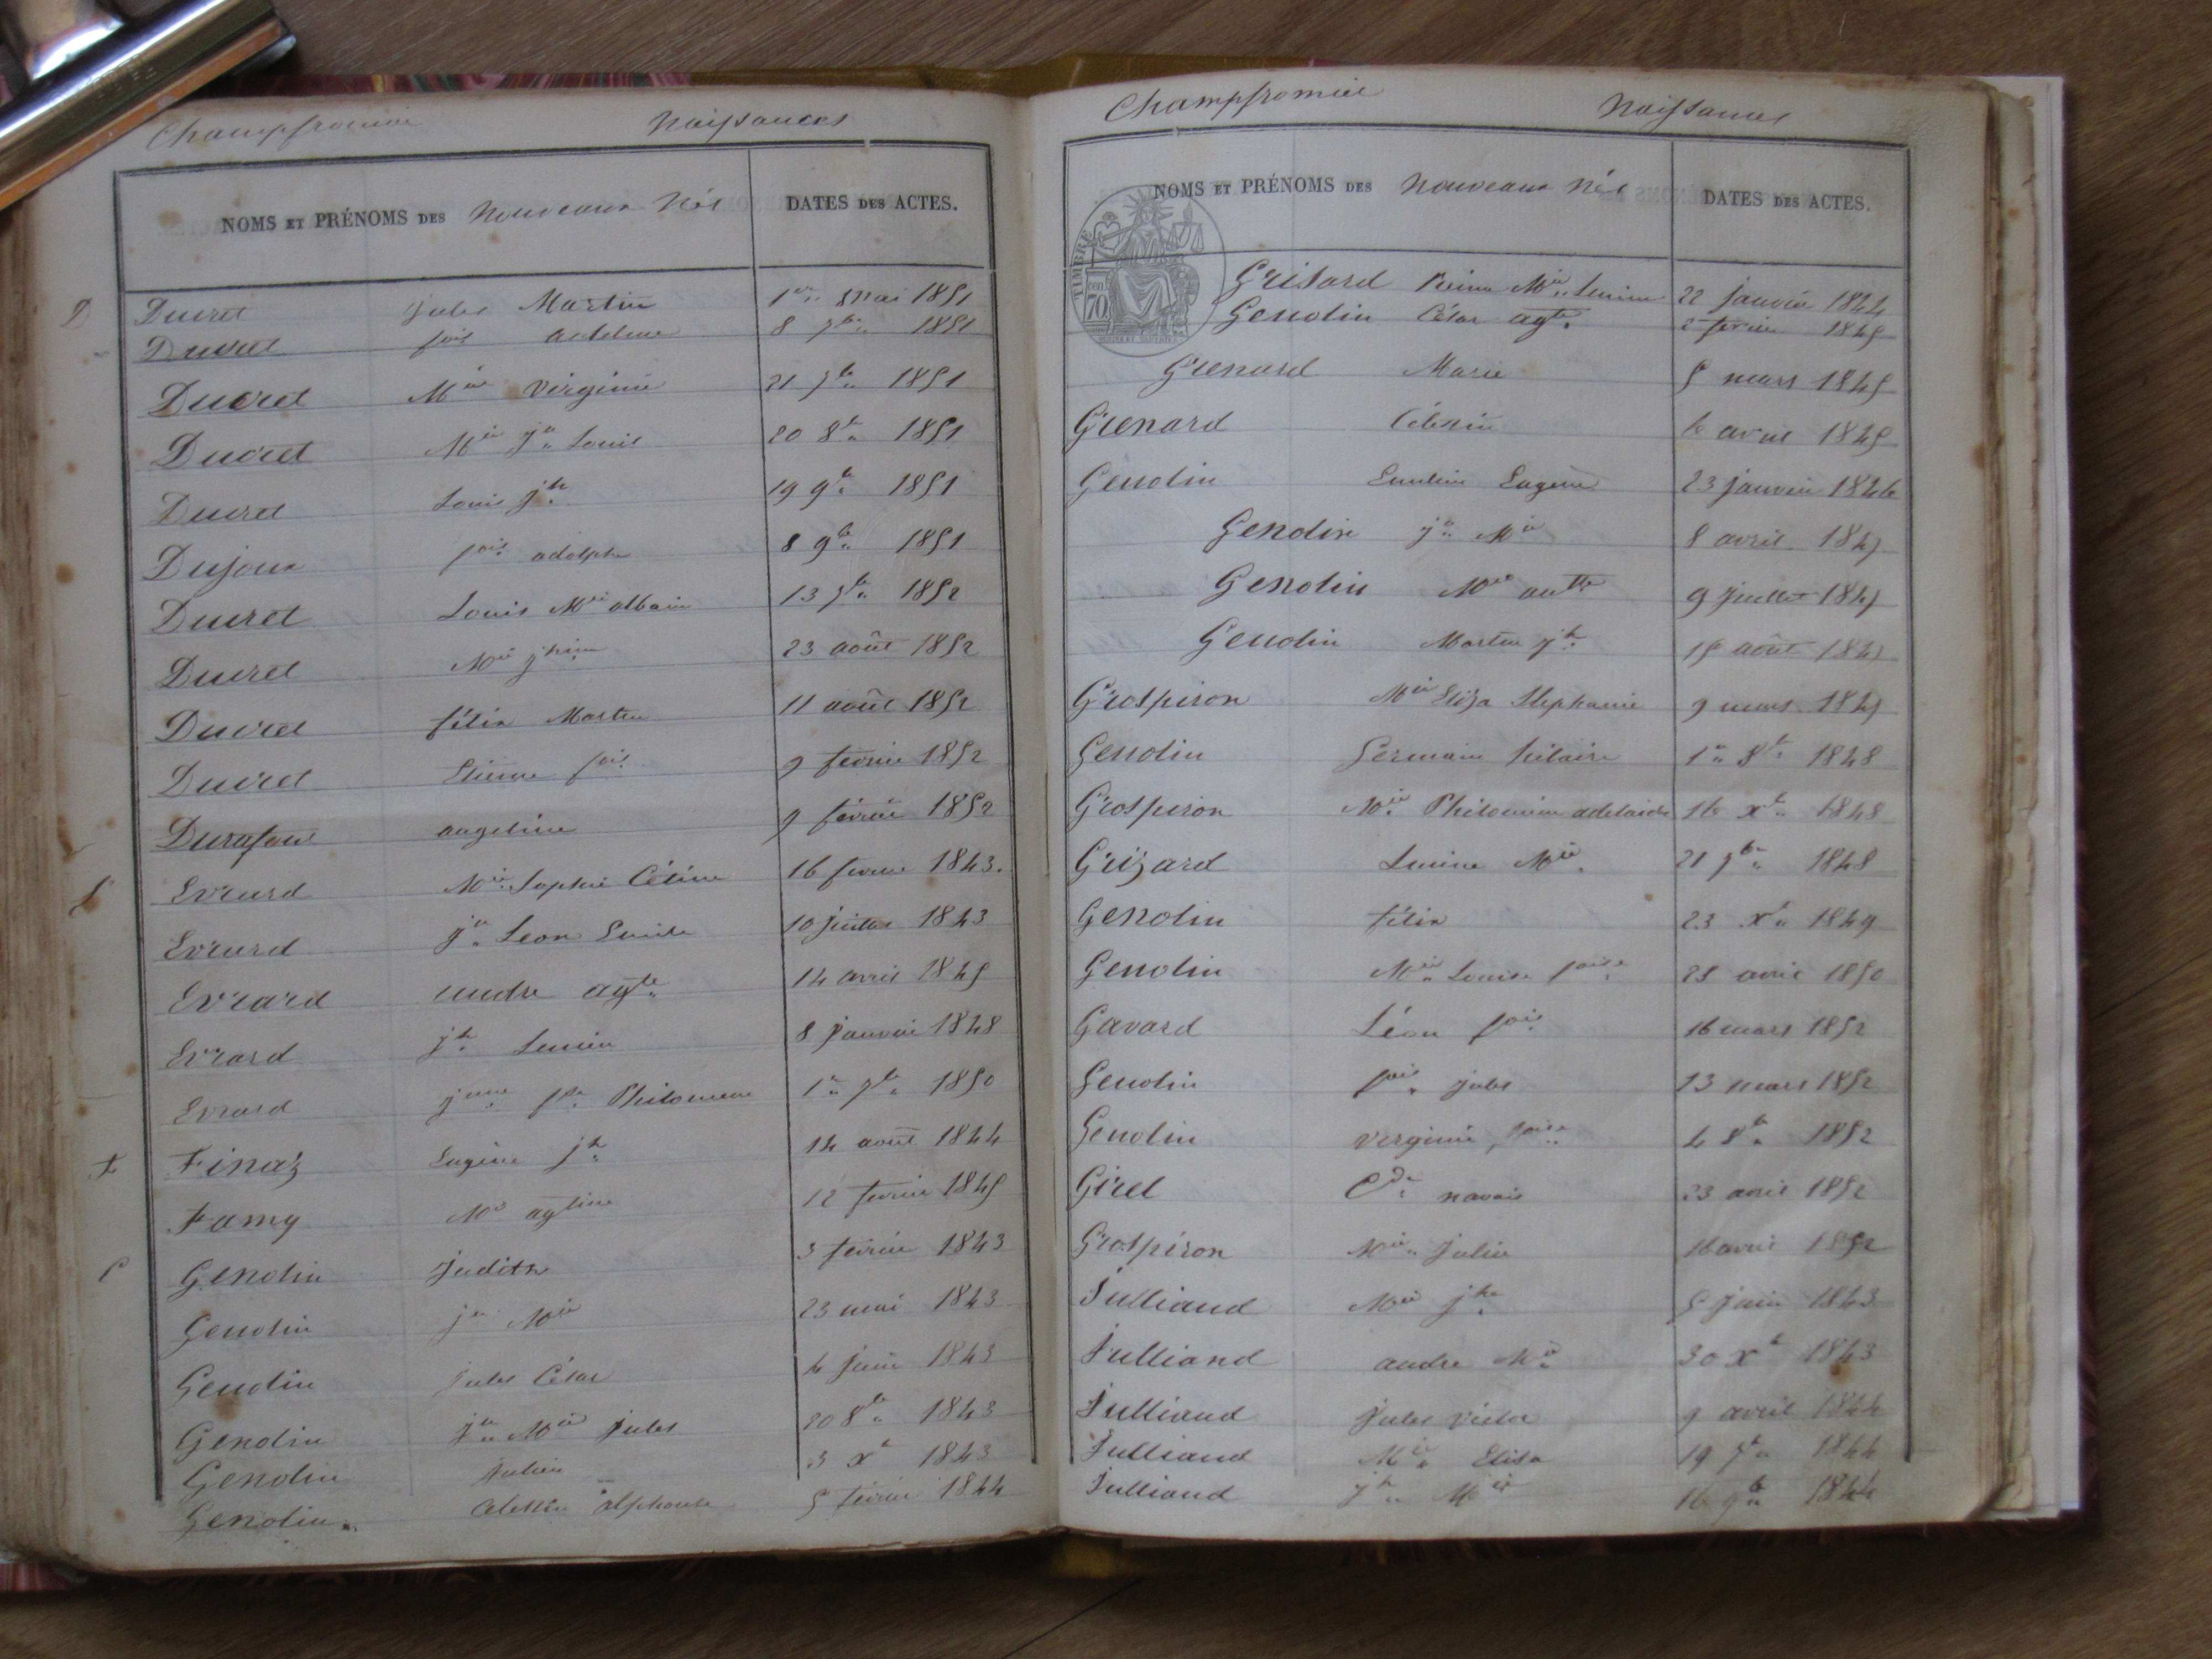 Champfromier Naissances
NOMS ET PRÉNOMS DES Nouveaux Nés DATES DES ACTES.
D Ducret Jules Martin 1er mai 1851
Ducret fois adeline 8 7bre 1851
Ducret Mie Virginie 21 7bre 1851
Ducret Mie Jn Louis 20 8bre 1851
Ducret Louis Jh 19 9bre 1851
Dujoux fois adolphe 8 9bre 1851
Ducret Louis Mie albain 13 7bre 1852
Ducret Mie 23 août 1852
Ducret félix Martin 11 août 1852
Ducret Etienne fois 9 février 1852
Durafour angeline 9 février 1852
Evrard Mie Sophie Céline 16 février 1843.
Evrard Jn Léon Emile 10 juillet 1843
Evrard andre agte 14 avril 1845
Evrard Jh Lucien 8 janvier 1848
Evrard Philomene 1er 7bre 1850
F Finaz Eugène Jh 14 août 1844
Famy Mie agtine 12 février 1845
Gendin Judith 3 février 1843
Gendin Jn Mie 23 mai 1843
Gendin Jules César 4 juin 1843
Gendin Jn Mie Jules 20 8bre 1843
Gendin Julien 3 xbre 1843
Gendin alphonse 5 février 1844
Champfromier Naissances
NOMS ET PRÉNOMS DES Nouveaux Nés DATES DES ACTES.
TIMBRE
70
Grisard Mie 22 janvier 1844
Gendin César agte 2 février 1845
Grenard Marie 5 mars 1845
Grenard Célestin 6 avril 1845
Gendin Eugene 23 janvier 1846
Gendin Jn Mie 8 avril 1847
Gendin Mie antte 9 juillet 1847
Gendin Martin Jh 15 août 1847
Grospiron Mie Eliza Stephanie 9 mars 1847
Gendin Germain hilaire 1er 8bre 1848
Grospiron Mie Philomène adelaide 16 xbre 1848
Grizard Mie 21 7bre 1848
Gendin félix 23 xbre 1849
Gendin Mie Louise foise 25 avril 1850
Gavard Léon fois 16 mars 1852
Gendin fois Jules 13 mars 1852
Gendin virginie foise 4 8bre 1852
Girel 23 avril 1852
Grospiron Mie Julie 16 avril 1852
Julliand Mie Jhe 5 juin 1843
Julliand andre Mie 30 xbre 1843
Julliand Jules Victor 9 avril 1844
Julliand Mie Elisa 19 7bre 1844
Julliand Jh Mie 16 9bre 1844